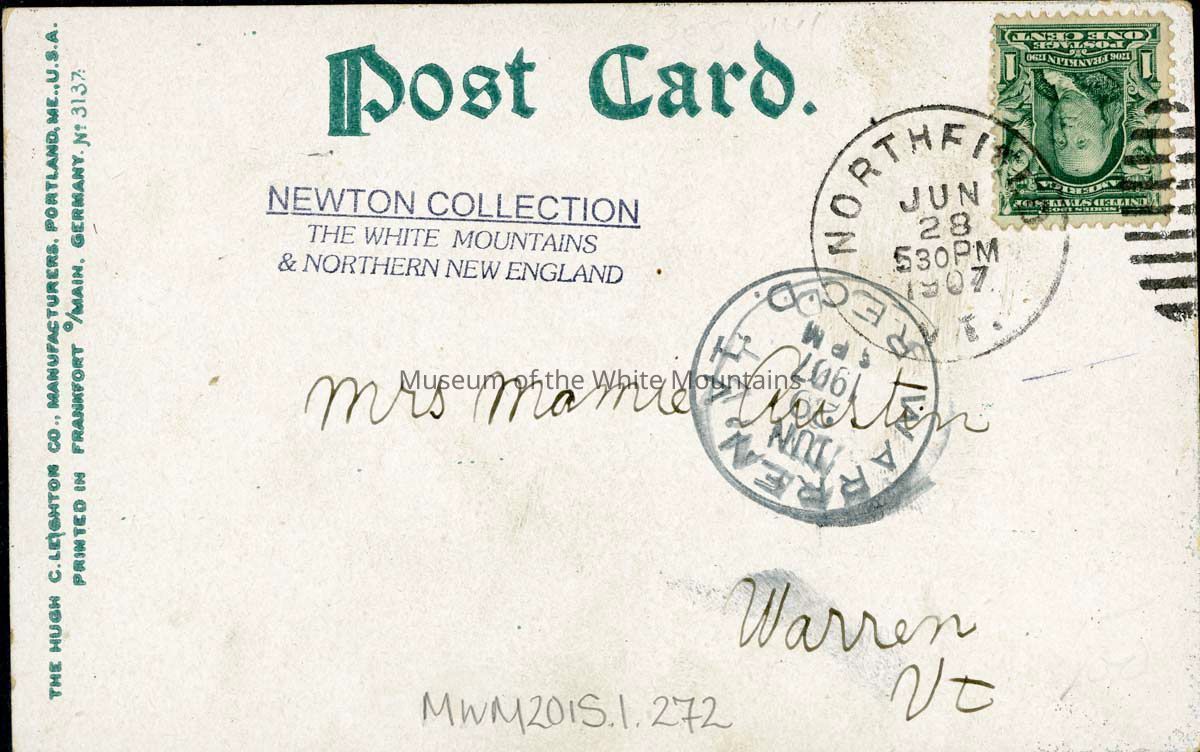 THE HUGH C. LEIGHTON CO., MANUFACTURERS, PORTLAND, ME., U.S.A.
PRINTED IN FRANKFORT o/MAIN, GERMANY. No 3137.
Post Card.
NEWTON COLLECTION
THE WHITE MOUNTAINS
& NORTHERN NEW ENGLAND
ONE CENT
POSTAGE
1706 FRANKLIN 1790
1 1
UNITED STATES OF
AMERICA
SERIES 1902
NORTHFIELD
JUN
28
530PM
1907
VT.
WARREN, VT. REC'D.
JUN
29
1907
PM
Mrs Mamie Austin
Museum of the White Mountains
Warren
Vt
MWM2015.1.272